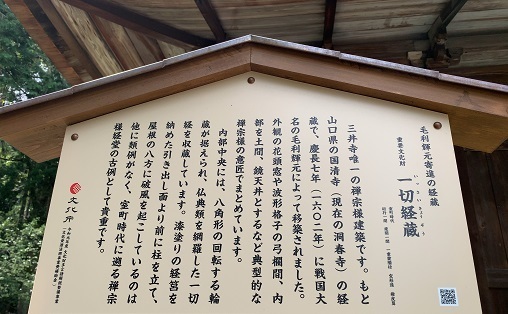 毛利輝元寄進の経蔵
重要文化財
一切経蔵
いっさいきょうぞう
三井寺唯一の禅宗様建築です。もと
山口県の国清寺（現在の洞春寺）の経
蔵で、慶長七年（一六〇二年）に戦国大
名の毛利輝元によって移築されました。
外観の花頭窓や波形格子の弓欄間、内
部を土間、鏡天井とするなど典型的な
禅宗様の意匠でまとめています。
内部中央には、八角形の回転する輪
蔵が据えられ、仏典類を網羅した一切
経を収蔵しています。漆塗りの経箱を
納めた引き出し面より前に柱を立て、
屋根の八方に破風を起こしているのは
他に類例がなく、室町時代に遡る禅宗
様経堂の古例として貴重です。
文化庁